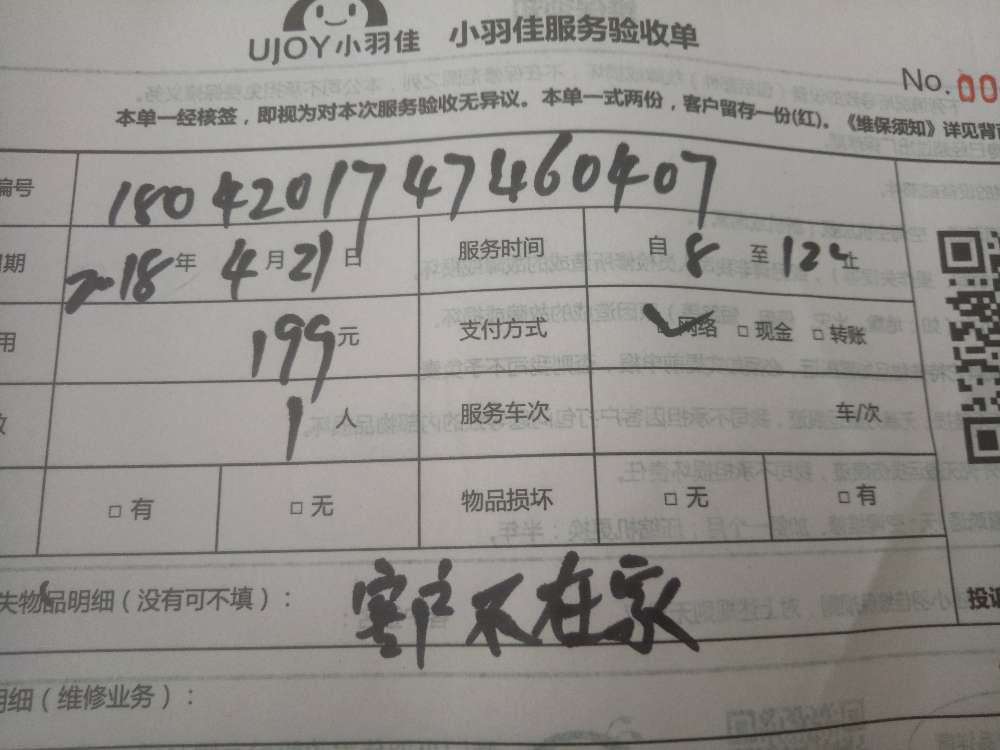 UJOY小羽佳 小羽佳服务验收单
No.00
本单一经核签，即视为对本次服务验收无异议。本单一式两份，客户留存一份(红)。《维保须知》详见背面
编号 1804201747460407
日期 2018年4月21日 服务时间 自 8 至 12 止
用 199元 支付方式 网络 □现金 □转账
数 1人 服务车次 车/次
□有 □无 物品损坏 □无 □有
失物品明细（没有可不填）： 客户不在家
投诉
明细（维修业务）：